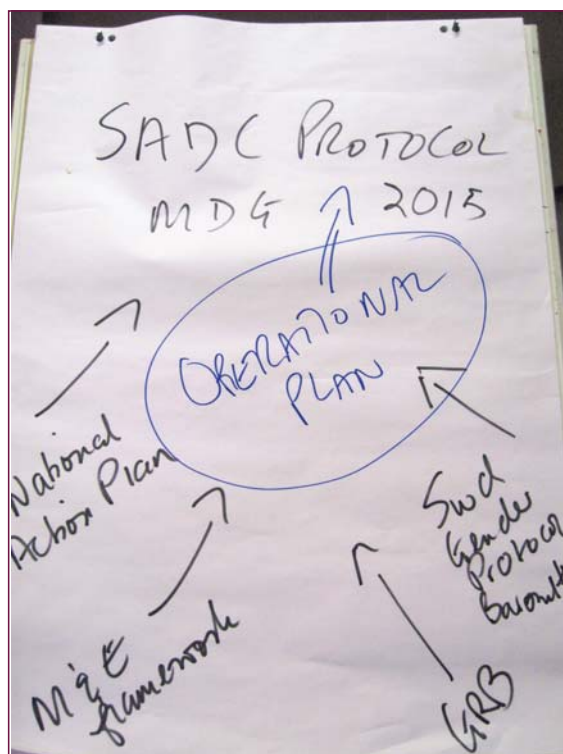 SADC PROTOCOL
MDG 2015
OPERATIONAL
PLAN
National
Action Plan
M & E
framework
GRB
Swd
Gender
Protocol